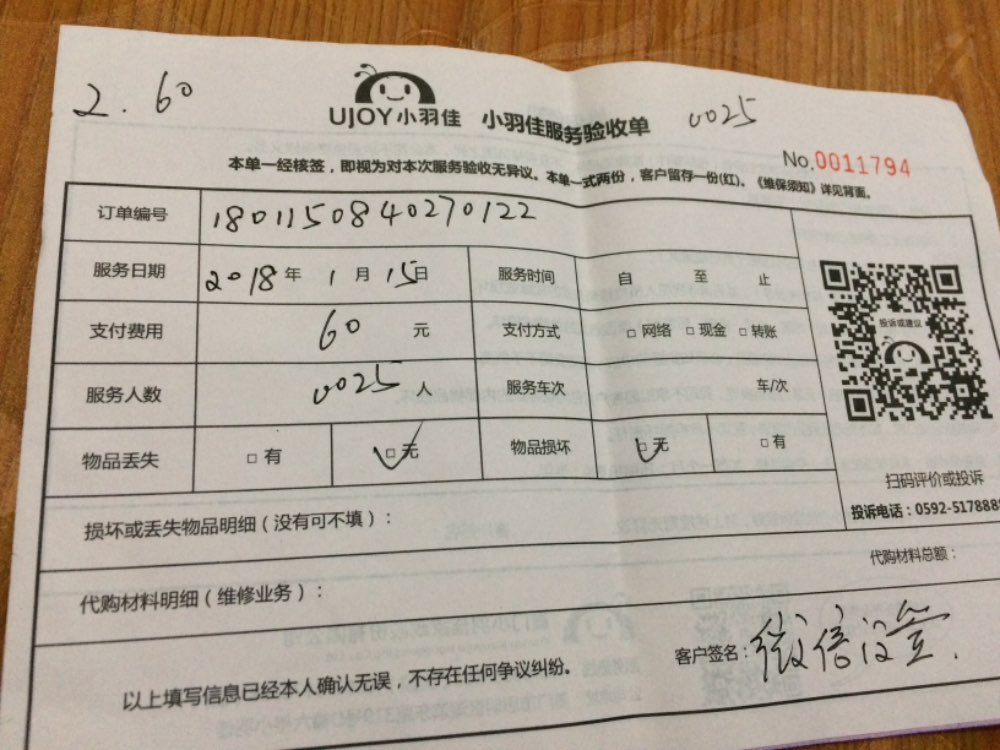 2.60
UJOY小羽佳 小羽佳服务验收单 0025
No.0011794
本单一经核签，即视为对本次服务验收无异议。本单一式两份，客户留存一份(红)。《维保须知》详见背面。
订单编号 1801150840270122
服务日期 2018年1月15日 服务时间 自 至 止
投诉或建议
支付费用 60 元 支付方式 □网络 □现金 □转账
服务人数 0025人 服务车次 车/次
物品丢失 □有 □无 物品损坏 □无 □有
扫码评价或投诉
投诉电话：0592-5178888
损坏或丢失物品明细（没有可不填）：
代购材料总额：
代购材料明细（维修业务）：
客户签名：微信没
以上填写信息已经本人确认无误，不存在任何争议纠纷。